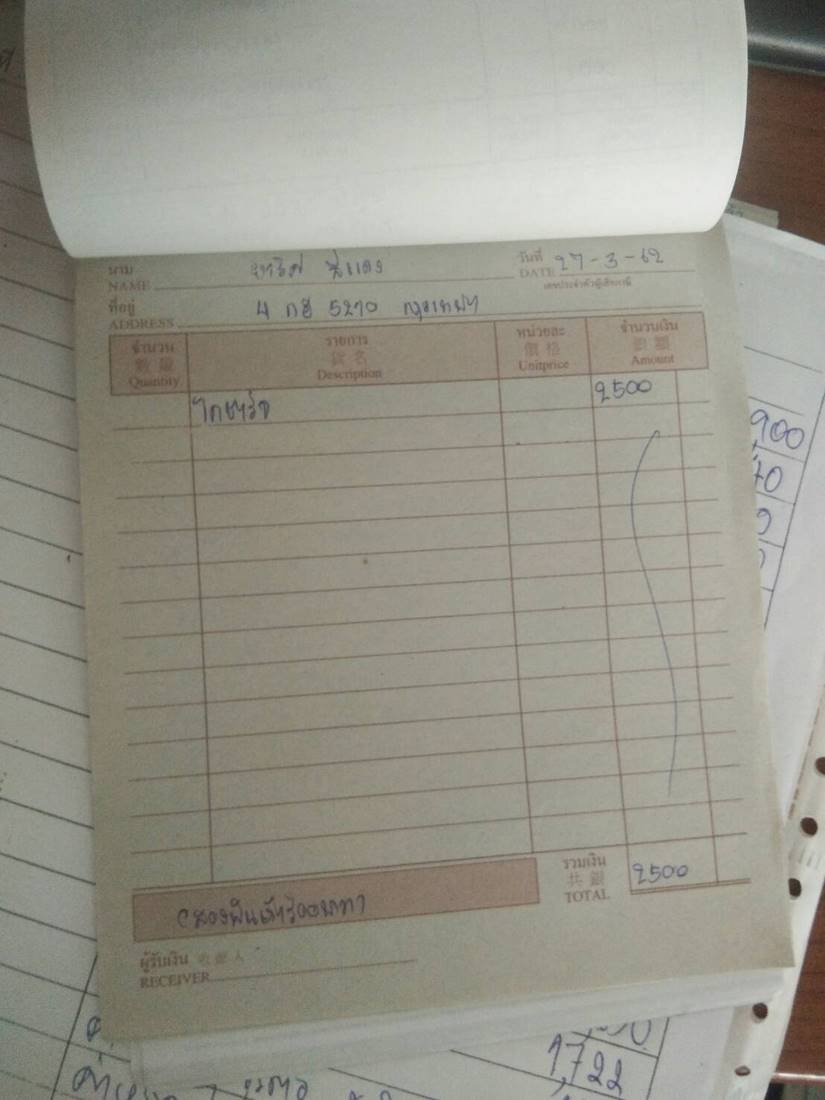 นาม
NAME
วันที่ 27-3-62
DATE
เลขประจำตัวผู้เสียภาษี
ที่อยู่
ADDRESS 4 กฮ 5270 กรุงเทพฯ
จำนวน รายการ หน่วยละ จำนวนเงิน
數量 貨名 價格 銀額
Quantity Description Unitprice Amount
2500
รวมเงิน
共銀
TOTAL 2500
(สองพันห้าร้อยบาท)
ผู้รับเงิน 收銀人
RECEIVER
900
1,722